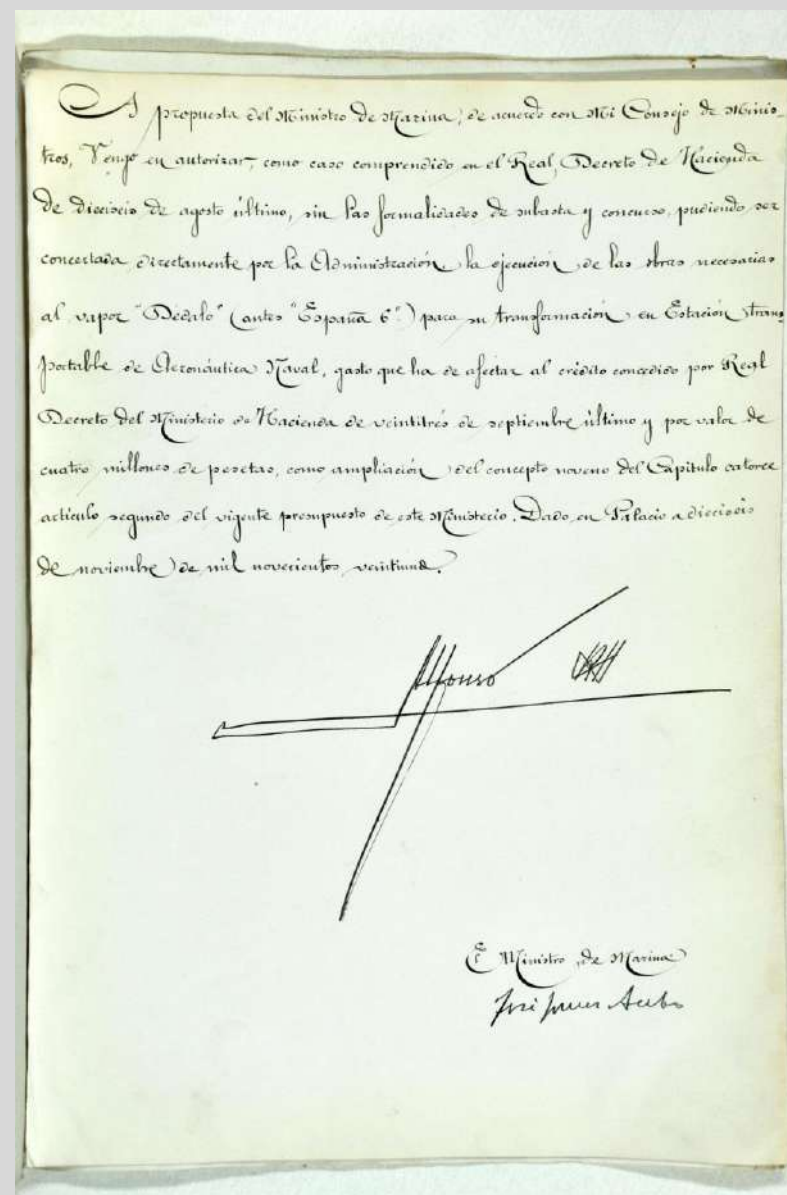 A propuesta del Ministro de Marina, de acuerdo con Mi Consejo de Minis-
tros, Vengo en autorizar, como caso comprendido en el Real Decreto de Hacienda
de dieciseis de agosto último, sin las formalidades de subasta y concurso, pudiendo ser
concertada directamente por la Administración, la ejecución de las obras necesarias
al vapor "Dédalo" (antes "España 6".) para su transformación en Estación trans-
portable de Aeronáutica Naval, gasto que ha de afectar al crédito concedido por Real
Decreto del Ministerio de Hacienda de veintitrés de septiembre último y por valor de
cuatro millones de pesetas, como ampliación del concepto noveno del Capitulo catorce
artículo segundo del vigente presupuesto de este Ministerio. Dado en Palacio a dieciseis
de noviembre de mil novecientos veintiuno.
Alfonso
El Ministro de Marina
José